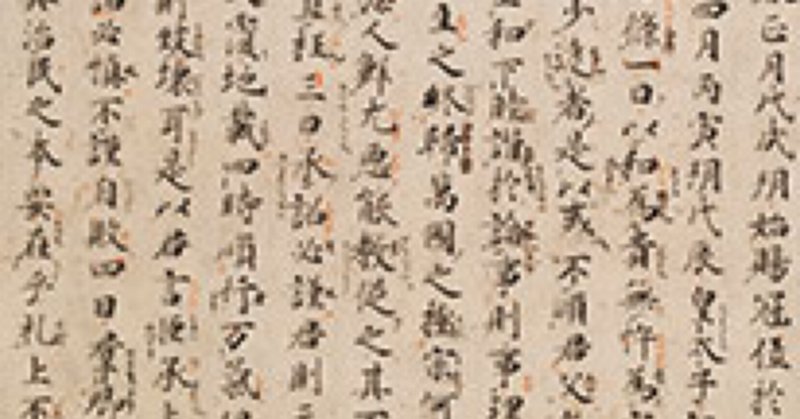 正月戊戌朔始賜冠位於
四月丙寅朔戊辰皇太子
條一曰以和為貴無忤為
少達者是以或不順君父
和下睦諧於論事則事理
生之終歸萬國之極宗何
人鮮尤悪能教従之其不
枉三曰承詔必謹君則
覆地載四時順行万氣
則致壊耳是以君言臣承上
詔必慎不謹自敗四曰羣卿
治民之本要在乎礼上不